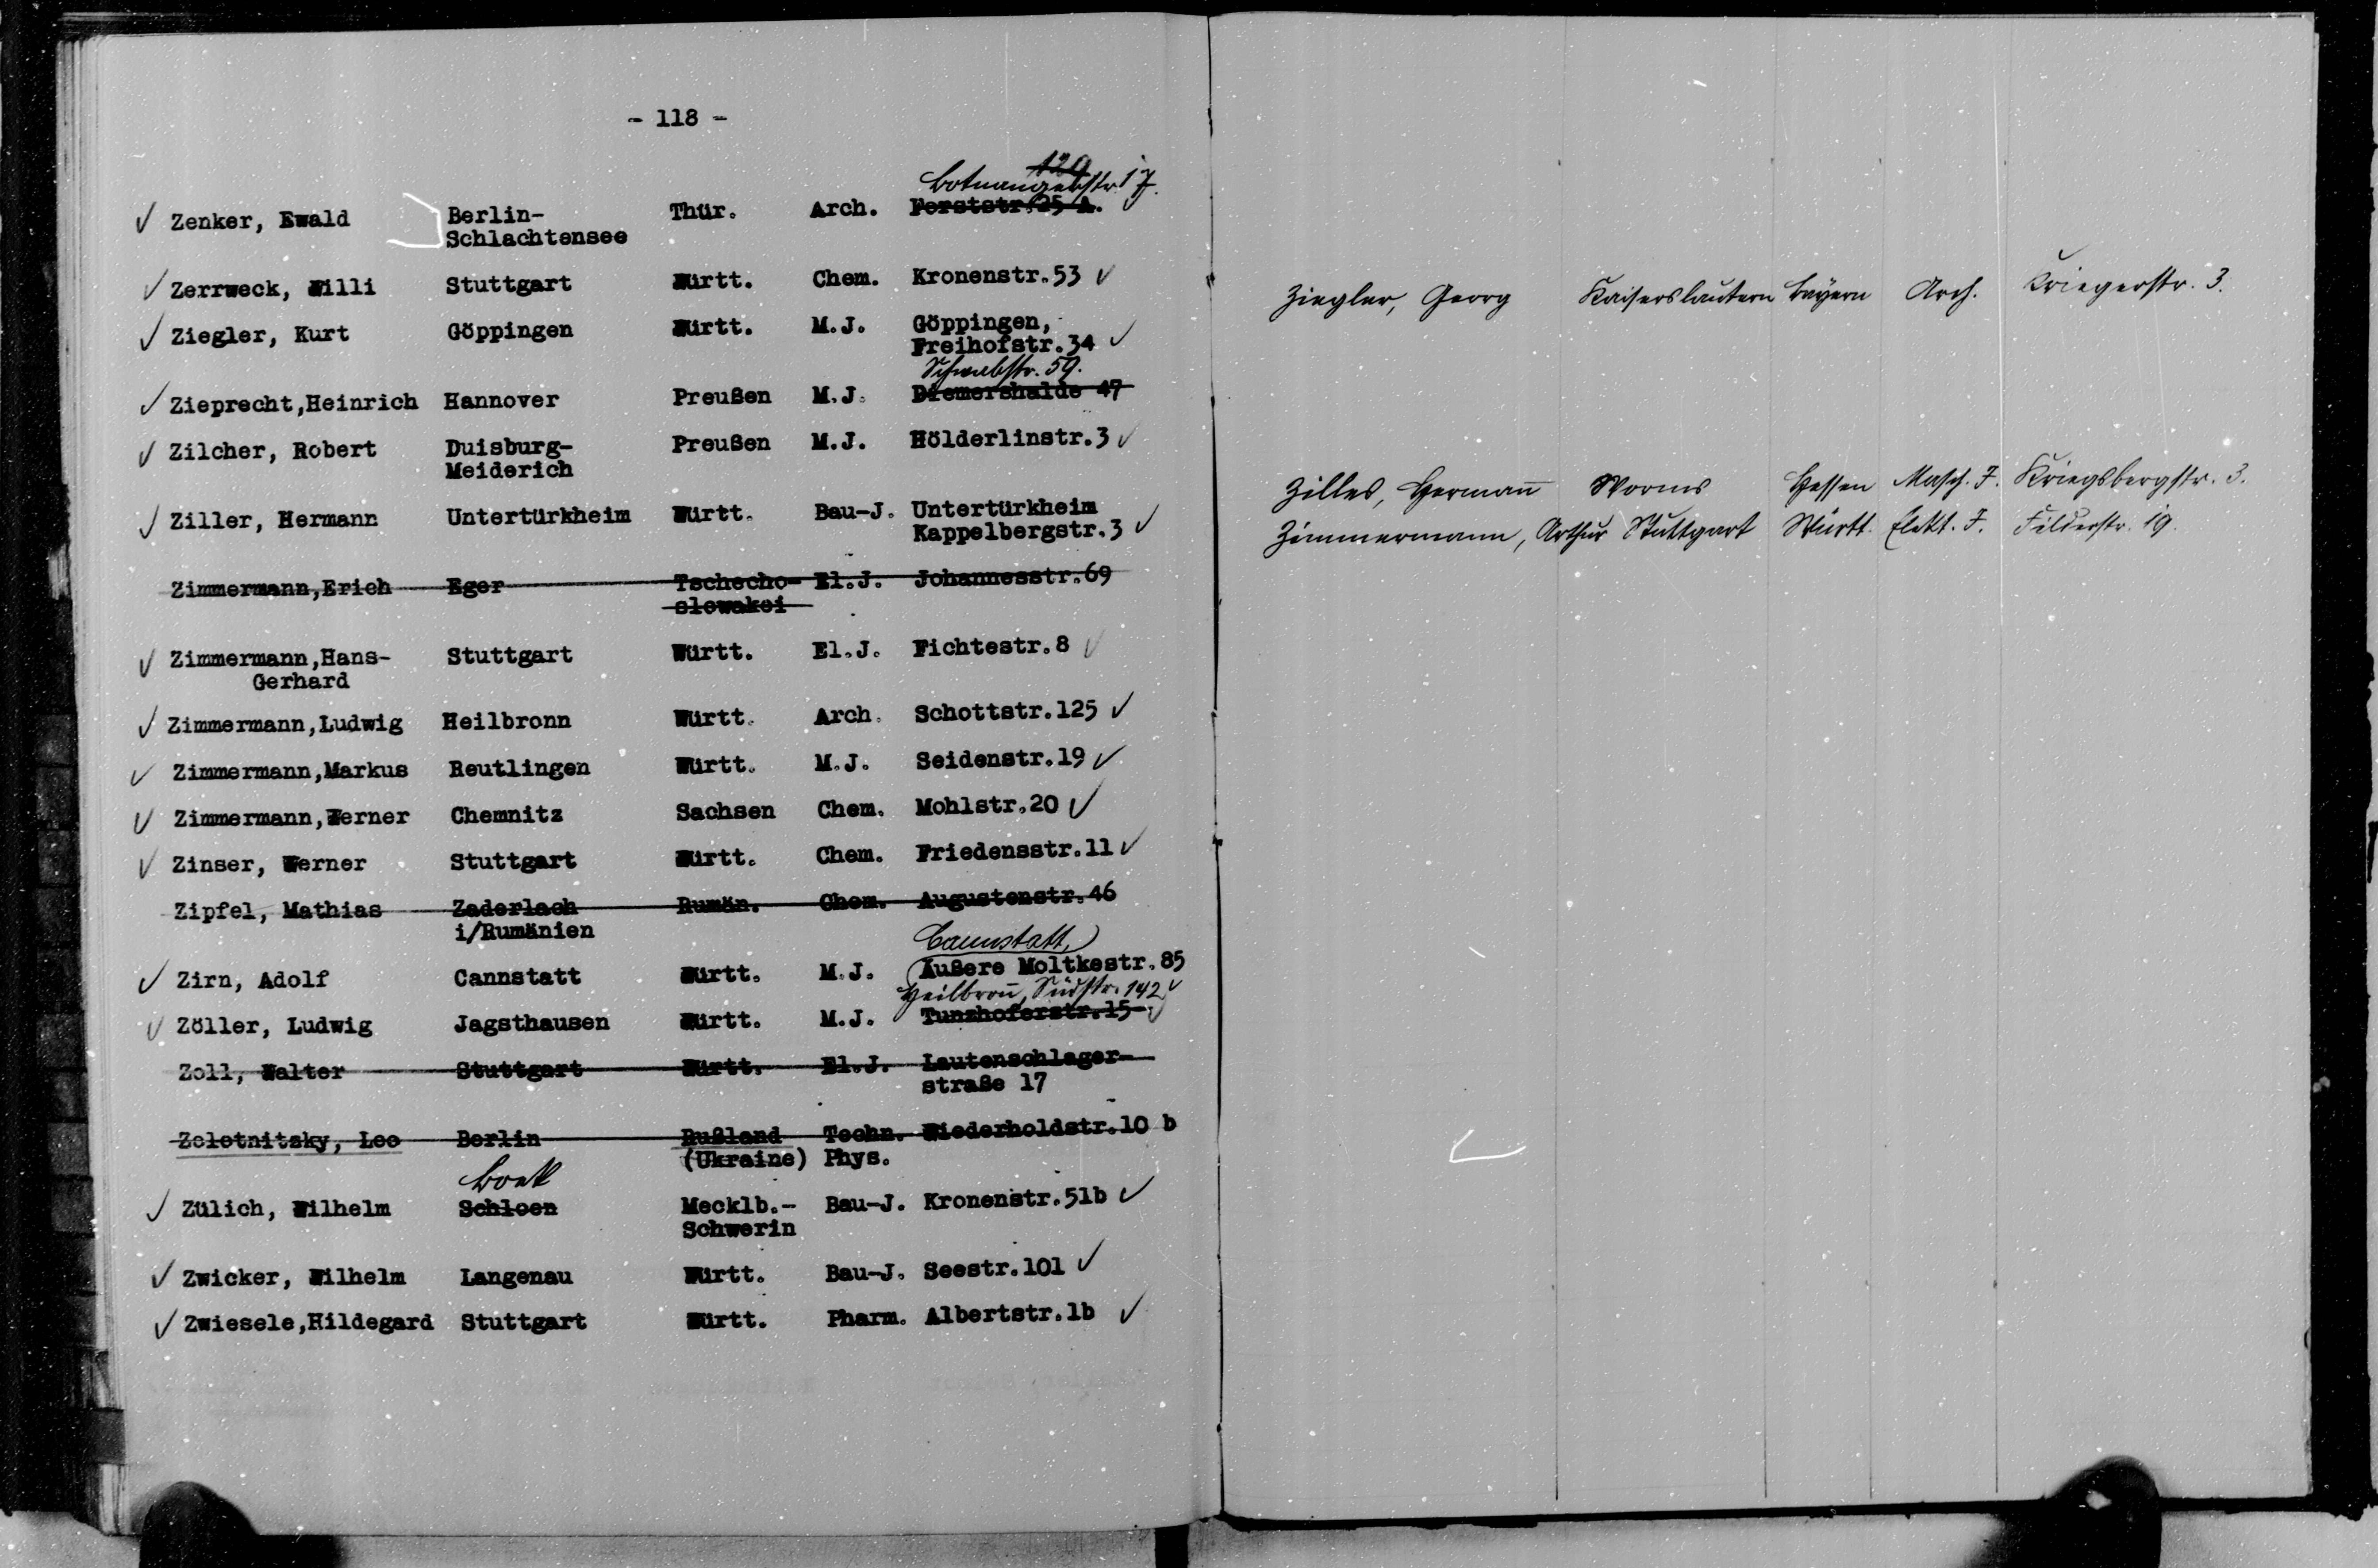 - 118 -
129
Botnangerstr. 17.
Zenker, Ewald Berlin- Thür. Arch. Forststr. 125 A.
Schlachtensee
Zerrweck, Willi Stuttgart Württ. Chem. Kronenstr.53
Ziegler, Kurt Göppingen Württ. M.J. Göppingen,
Freihofstr.34
Schwabstr. 59.
Zieprecht,Heinrich Hannover Preußen M.J. Diemershalde 47
Zilcher, Robert Duisburg- Preußen M.J. Hölderlinstr.3
Meiderich
Ziller, Hermann Untertürkheim Württ. Bau-J. Untertürkheim
Kappelbergstr.3
Zimmermann,Erich Eger Tschecho- El.J. Johannesstr.69
slowakei
Zimmermann,Hans- Stuttgart Württ. El.J. Fichtestr.8
Gerhard
Zimmermann,Ludwig Heilbronn Württ. Arch. Schottstr.125
Zimmermann,Markus Reutlingen Württ. M.J. Seidenstr.19
Zimmermann,Werner Chemnitz Sachsen Chem. Mohlstr.20
Zinser, Werner Stuttgart Württ. Chem. Friedensstr.11
Zipfel, Mathias Zaderlach Rumän. Chem. Augustenstr.46
i/Rumänien
Cannstatt,
Zirn, Adolf Cannstatt Württ. M.J. Äußere Moltkestr.85
Heilbronn, Südstr. 142
Zöller, Ludwig Jagsthausen Württ. M.J. Tunzhoferstr.15
Zoll, Walter Stuttgart Württ. El.J. Lautenschlager-
straße 17
Zolotnitsky, Leo Berlin Rußland Techn. Wiederholdstr.10 b
(Ukraine) Phys.
Zülich, Wilhelm Schloen Mecklb.- Bau-J. Kronenstr.51b
Schwerin
Zwicker, Wilhelm Langenau Württ. Bau-J. Seestr.101
Zwiesele,Hildegard Stuttgart Württ. Pharm. Albertstr.1b
Ziegler, Georg Kaiserslautern Bayern Arch. Kriegerstr. 3.
Zilles, Hermann Worms Hessen Masch. J. Kriegsbergstr. 3.
Zimmermann, Arthur Stuttgart Württ. Elekt. J. Filderstr. 19.